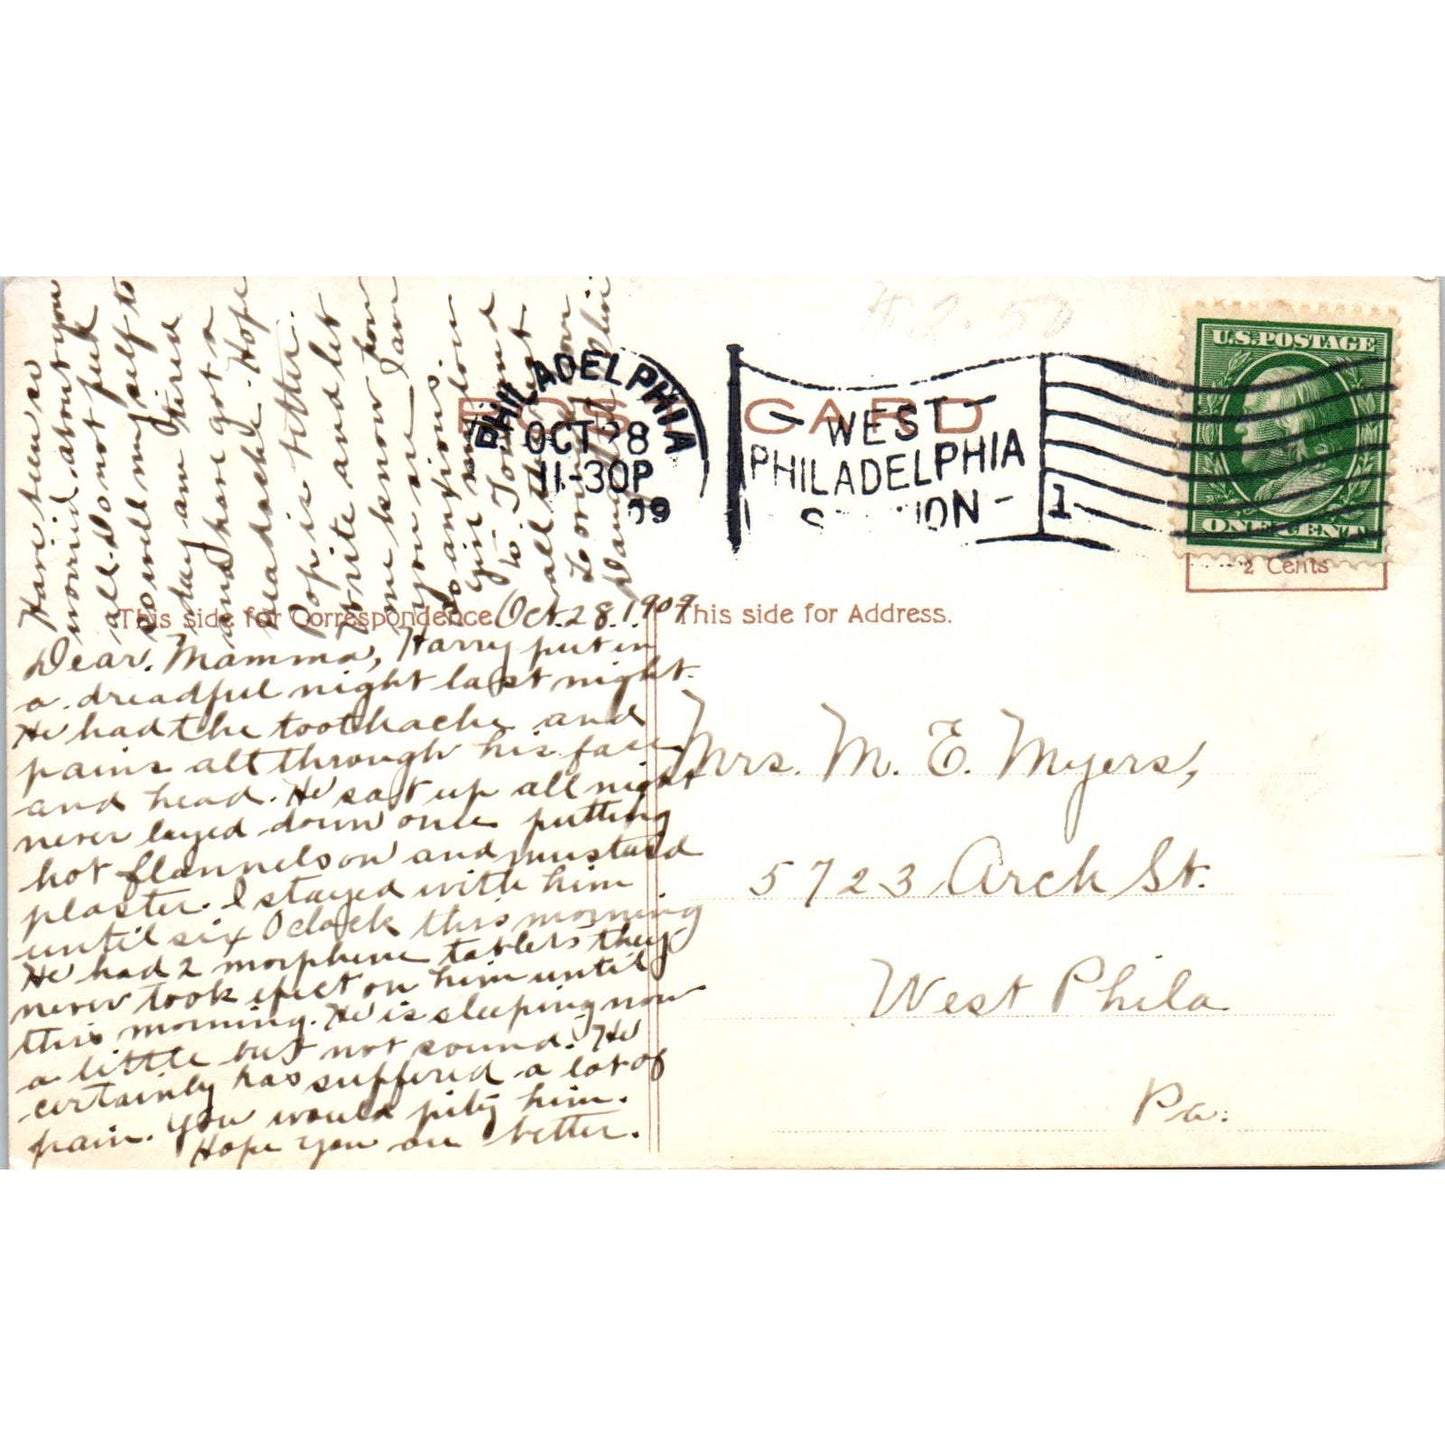 #2.50
U.S. POSTAGE
ONE CENT
2 Cents
PHILADELPHIA
OCT 28
11-30P
09
WEST
PHILADELPHIA
ION
1
POS CARD
This side for Correspondence
This side for Address.
Oct. 28. 1909
Dear. Mamma, Harry put in
a dreadful night last night.
He had the toothache and
pains all through his face
and head. He sat up all night
never layed down once putting
hot flannels on and mustard
plaster. I stayed with him
until six Oclock this morning
He had 2 morphene tablets they
never took efect on him until
this morning. He is sleeping now
a little but not sound. He
certainly has suffered a lot of
pain. You would pity him.
Hope you are better.
Have been so
worried about you
all. Do not feel
so well myself to
day am tired
and have got a
headache. Hope
Pop is better.
Write and let
me know how
you are I am
so anxious
Give my love
to Tom and
all the
Love
Mrs. M. E. Myers,
5723 Arch St.
West Phila
Pa.